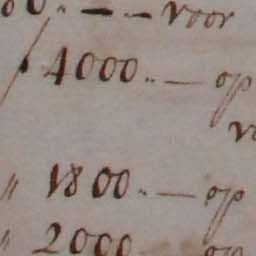 00 „ — — voor
ƒ 4000 „ — op
„ 1800 „ — op
„ 2000 op